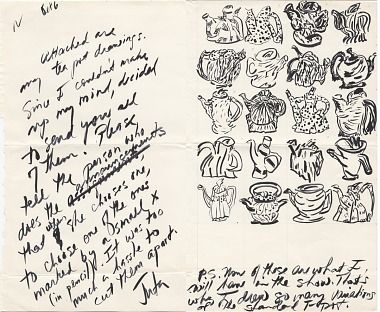 IV Bill
Attached are
my tea pot drawings.
Since I couldn't make
up my mind, decided
to send you all
of them. Please
tell the person who
does the announcements
that if she chooses one,
to choose one of the ones
marked by a small x
(in pencil). It was too
much a hassle to
cut them apart.
P.S. None of these are what I
will have in the show. That's
why I drew so many variations
of the standard teapot.